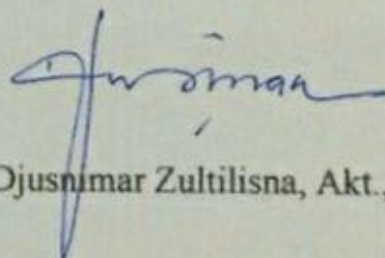 Djusnimar Zultilisna, Akt.,